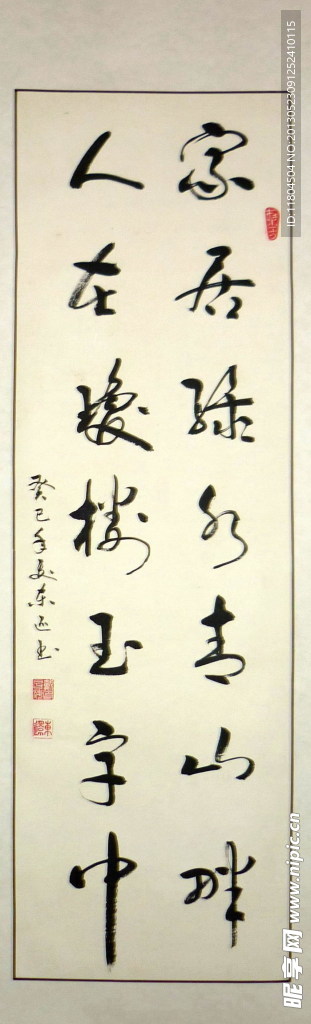 家居绿水青山畔
人在琼楼玉宇中
癸巳年夏东巡书
ID:11804504 NO:20130523091252410115
昵享网 www.nipic.cn